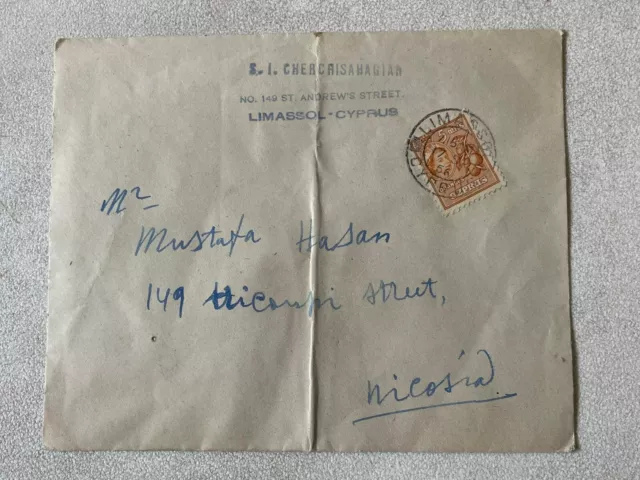 S. I. CHERCHISABAGIAN
NO. 149 ST. ANDREW'S STREET.
LIMASSOL-CYPRUS
LIMASSOL
CYPRUS
Mr
Mustafa Hasan
149 street,
Nicosia